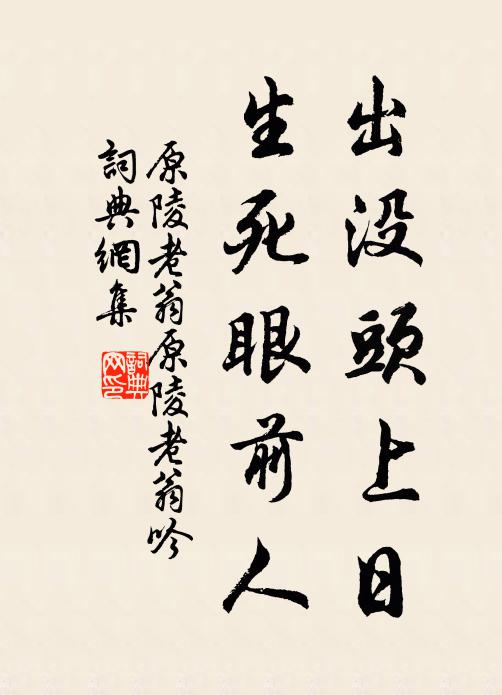 出没頭上日
生死眼前人
原陵老翁原陵老翁吟
詞典網集
詞典網印